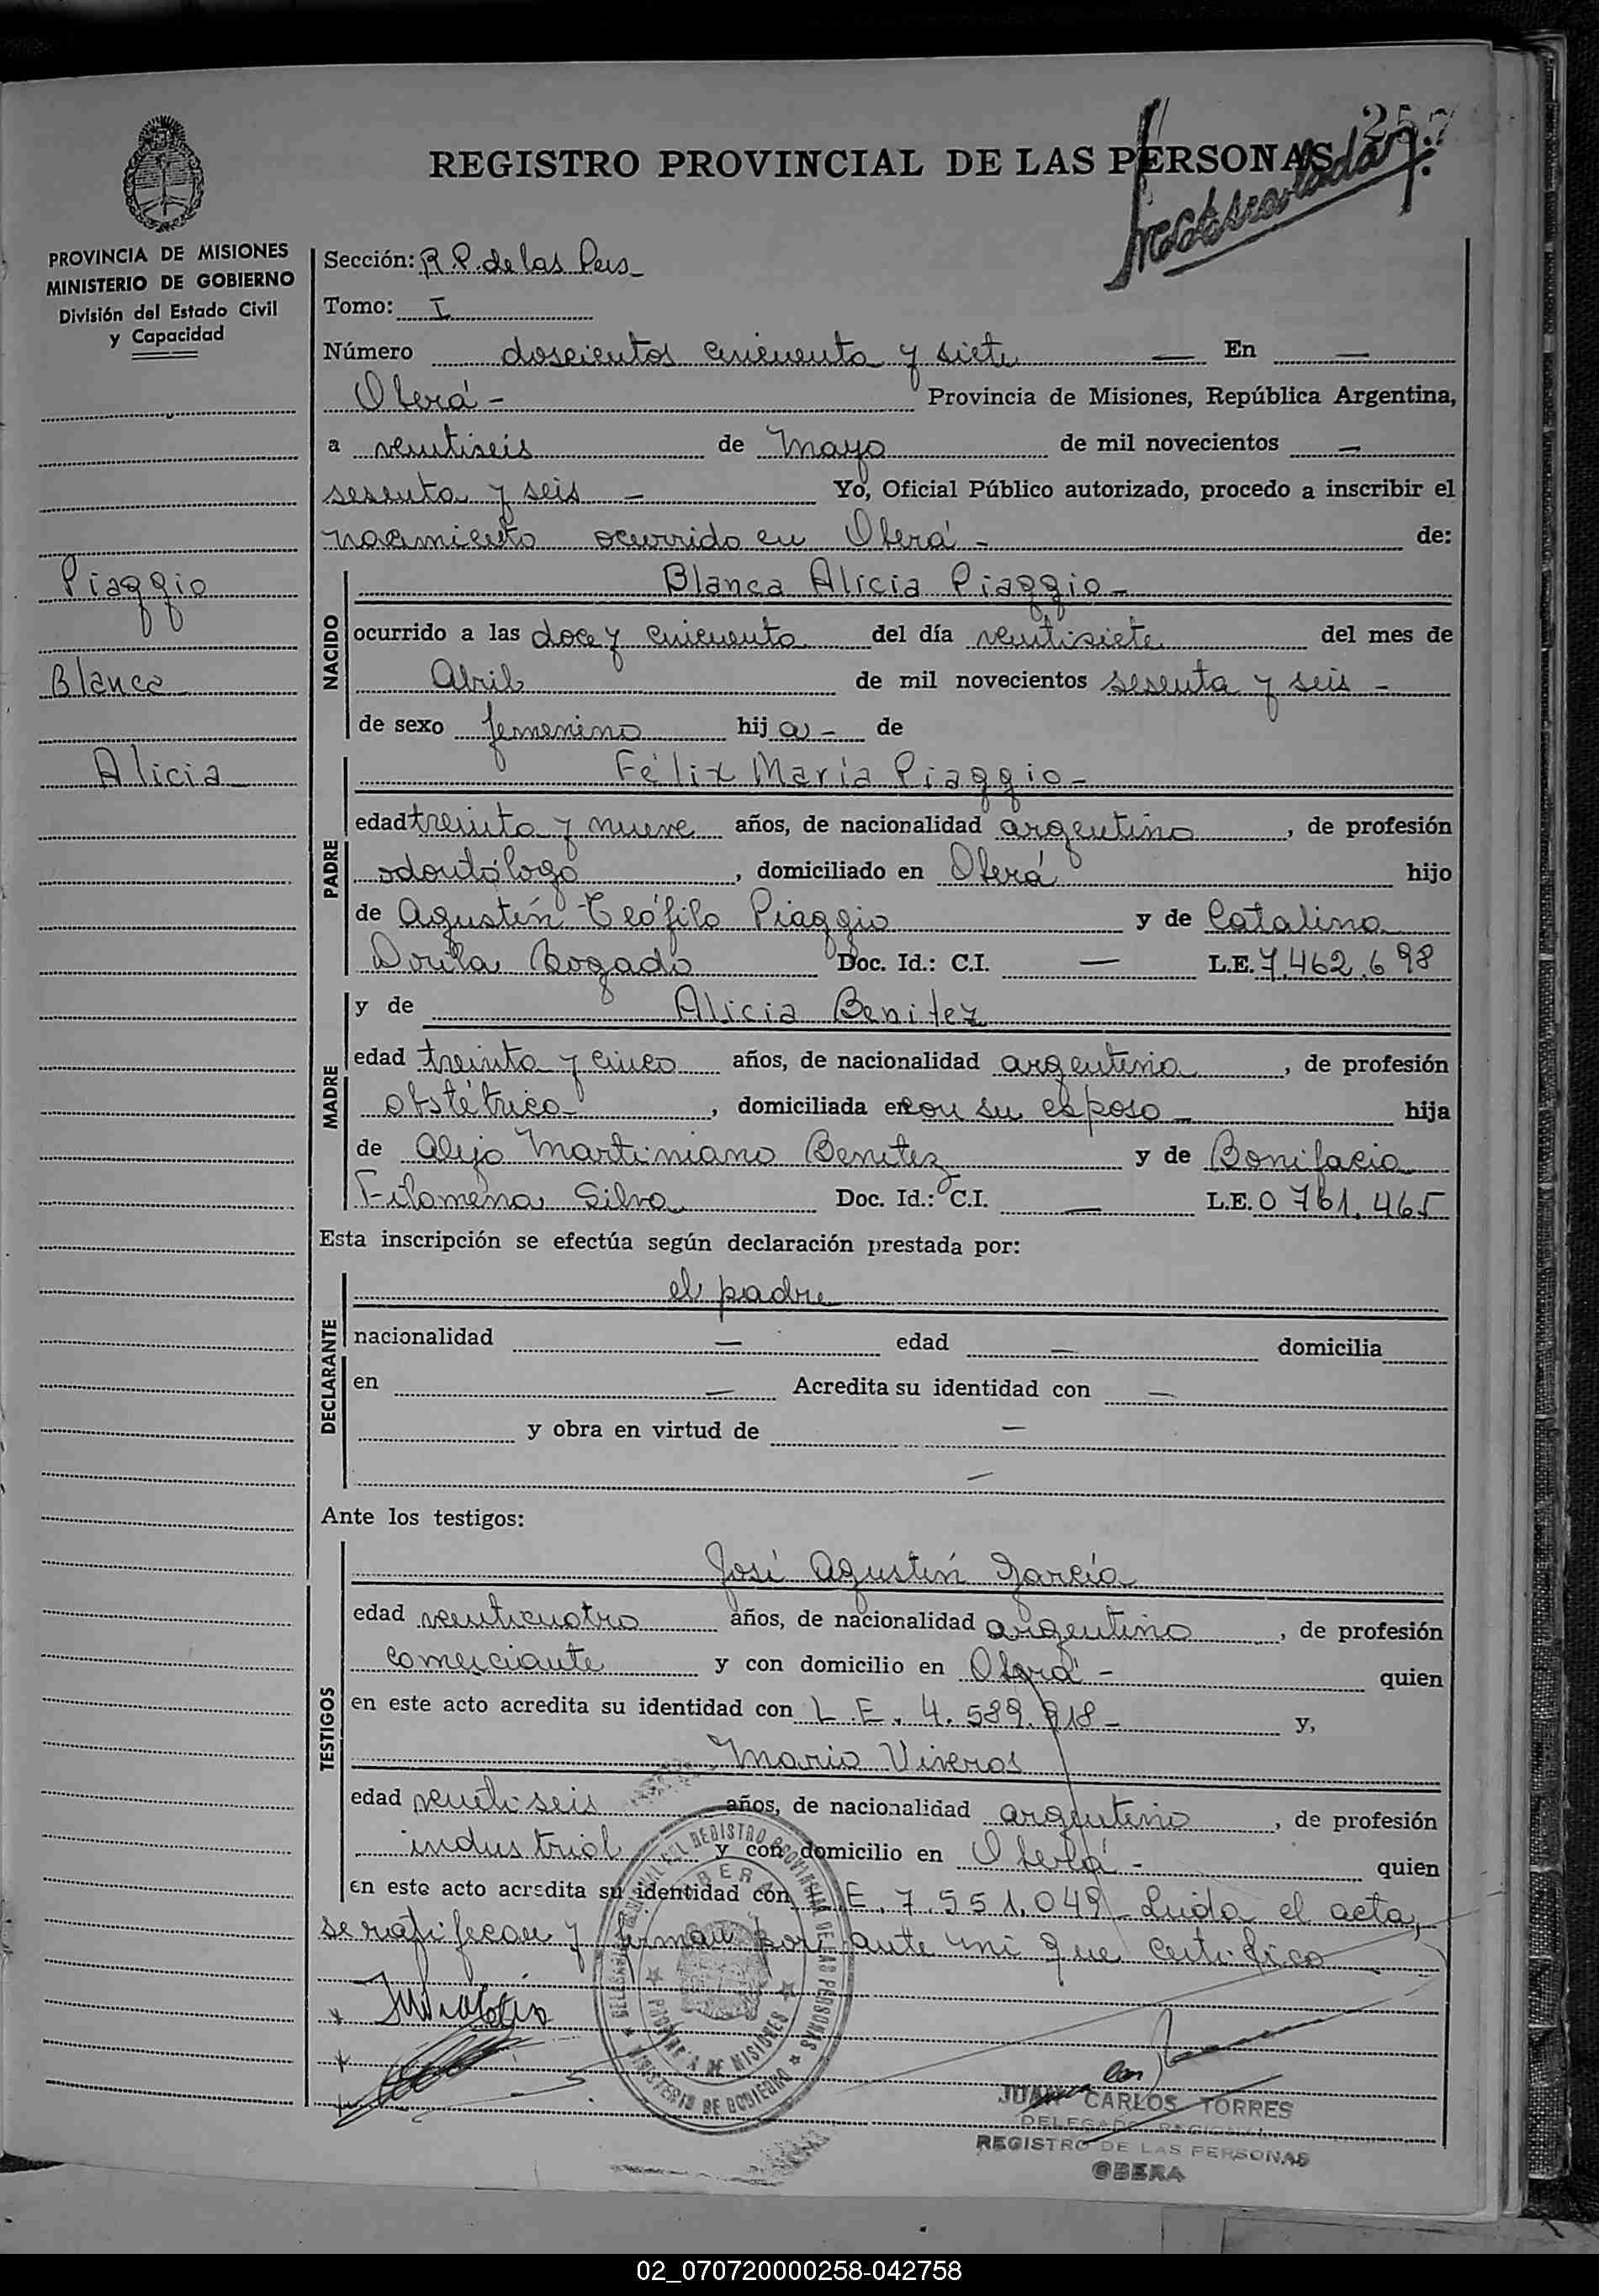 257
REGISTRO PROVINCIAL DE LAS PERSONAS
PROVINCIA DE MISIONES
MINISTERIO DE GOBIERNO
División del Estado Civil
y Capacidad
Piaggio
Blanca
Alicia
Sección: R.P. de las Pers
Tomo: I
Número doscientos cincuenta y siete — En —
Oberá - Provincia de Misiones, República Argentina,
a veintiseis de Mayo de mil novecientos —
sesenta y seis — Yo, Oficial Público autorizado, procedo a inscribir el
nacimiento ocurrido en Oberá - de:
NACIDO
Blanca Alicia Piaggio -
ocurrido a las doce y cincuenta del día veintisiete del mes de
Abril de mil novecientos sesenta y seis -
de sexo femenino hija - de
PADRE
Félix María Piaggio -
edad treinta y nueve años, de nacionalidad argentino, de profesión
odontólogo, domiciliado en Oberá hijo
de Agustín Teófilo Piaggio y de Catalina
Dorila Bogado Doc. Id.: C.I. — L.E. 7.462.698
MADRE
y de Alicia Benitez
edad treinta y cinco años, de nacionalidad argentina, de profesión
obstétrica -, domiciliada en con su esposo hija
de Alejo Martiniano Benitez y de Bonifacia
Filomena Silva Doc. Id.: C.I. — L.E. 0761.465
Esta inscripción se efectúa según declaración prestada por:
DECLARANTE
el padre
nacionalidad — edad — domicilia
en — Acredita su identidad con —
y obra en virtud de —
—
Ante los testigos:
TESTIGOS
José Agustín García
edad veinticuatro años, de nacionalidad argentino, de profesión
comerciante y con domicilio en Oberá - quien
en este acto acredita su identidad con L.E. 4.589.918 - y,
Mario Viveros
edad veintiseis años, de nacionalidad argentino, de profesión
industrial y con domicilio en Oberá - quien
en este acto acredita su identidad con L.E. 7.551.049 - Leida el acta,
se ratifican y firman por ante mi que certifico
DELEGACION REGIONAL DEL REGISTRO PROVINCIAL DE LAS PERSONAS
OBERA
PROVINCIA DE MISIONES
MINISTERIO DE GOBIERNO
JUAN CARLOS TORRES
DELEGADO REGIONAL
REGISTRO DE LAS PERSONAS
OBERA
02_070720000258-042758